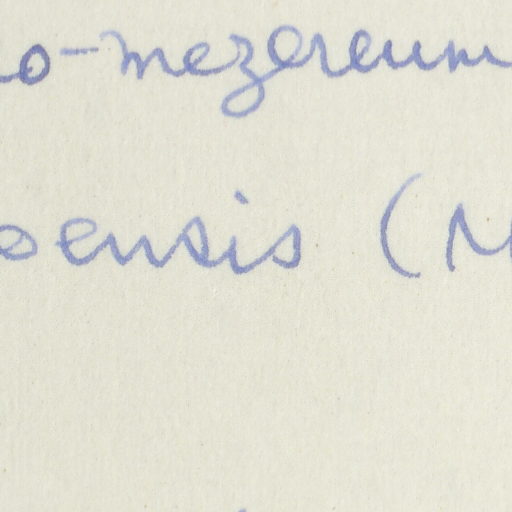 o-mezereum
oensis (